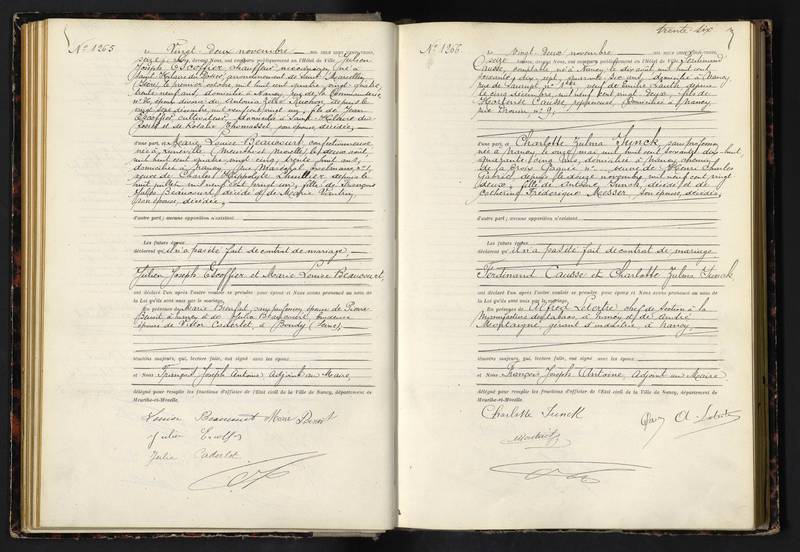 No 1265
Le Vingt-deux novembre mil neuf cent vingt-trois,
seize heures, devant Nous, ont comparu publiquement en l'Hôtel de Ville Julien
Joseph Escoffier, chauffeur mécanicien, né à
Saint Hilaire du Rosier, arrondissement de Saint Marcellin
(Isère), le premier octobre mil huit cent quatre vingt quatre,
trente neuf ans, domicilié à Nancy, rue de la Commanderie
époux divorcé de Antonia depuis le
mil neuf cent vingt un, fils de Jean
Escoffier, cultivateur, domicilié à Saint Hilaire du
Rosier et de Rosalie Thomasset, son épouse, décédée,
d'une part, et Marie Louise Beaucourt, confectionneuse
née à Lunéville (Meurthe et Moselle), le deux août,
mil huit cent quatre vingt cinq, trente huit ans,
domiciliée à Nancy, rue Maréchal
veuve de Charles Hippolyte depuis le
huit juillet mil neuf cent vingt un, fille de François
Joseph Beaucourt, décédé et de Marie
son épouse, décédée,
d'autre part ; aucune opposition n'existant.
Les futurs époux
déclarent qu'il n'a pas été fait de contrat de mariage.
Julien Joseph Escoffier et Marie Louise Beaucourt,
ont déclaré l'un après l'autre vouloir se prendre pour époux et Nous avons prononcé au nom de
la Loi qu'ils sont unis par le mariage.
En présence de Marie sans profession, épouse de Pierre
Benoit, à Nancy et de Julia Beaucourt,
épouse de Victor Caderlot, à Bondy (Seine),
témoins majeurs, qui, lecture faite, ont signé avec les époux
et Nous François Joseph Antoine adjoint au Maire,
délégué pour remplir les fonctions d'officier de l'État civil de la Ville de Nancy, département de
Meurthe-et-Moselle.
Louise Beaucourt Marie Benoit
Julien Escoffier
Julia Caderlot
trente six
No 1266
Le Vingt-deux novembre mil neuf cent vingt-trois,
seize heures, devant Nous, ont comparu publiquement en l'Hôtel de Ville Ferdinand
Causse, comptable, né à Nancy, le dix août mil huit cent
soixante dix sept, quarante six ans, domicilié à Nancy,
rue de veuf de Emilie depuis
le onze décembre mil neuf cent vingt deux, fils de
Hortense Causse, repasseuse, domiciliée à Nancy,
rue Drouin, no 9,
d'une part, et Charlotte Zulma Junck, sans profession
née à Nancy, le mai, mil huit cent soixante dix huit
quarante cinq ans, domiciliée à Nancy, chemin
de la Croix Gagnée no veuve de Henri Charles
Gabriel depuis le douze novembre mil neuf cent vingt
deux, fille de Antoine Junck, décédé et de
Catherine Frédérique Messer, son épouse, décédée,
d'autre part ; aucune opposition n'existant.
Les futurs époux
déclarent qu'il n'a pas été fait de contrat de mariage.
Ferdinand Causse et Charlotte Zulma Junck
ont déclaré l'un après l'autre vouloir se prendre pour époux et Nous avons prononcé au nom de
la Loi qu'ils sont unis par le mariage.
En présence de Alfred chef de section à la
Manufacture des tabacs, à Nancy et de André
Montaigne, gérant d'industrie, à Nancy,
témoins majeurs, qui, lecture faite, ont signé avec les époux
et Nous François Joseph Antoine, adjoint au Maire
délégué pour remplir les fonctions d'officier de l'État civil de la Ville de Nancy, département de
Meurthe-et-Moselle.
Charlotte Junck